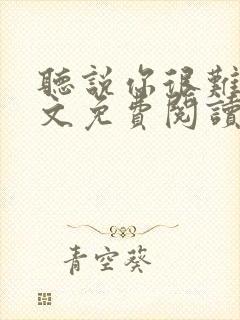 聽說你很難
文免費閱讀
青空葵